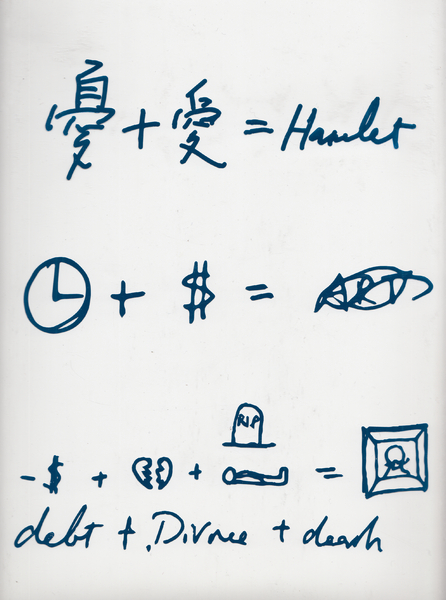 憂 + 愛 = Hamlet
+ $ = ART
RIP
- $ + + =
debt + Divorce + death